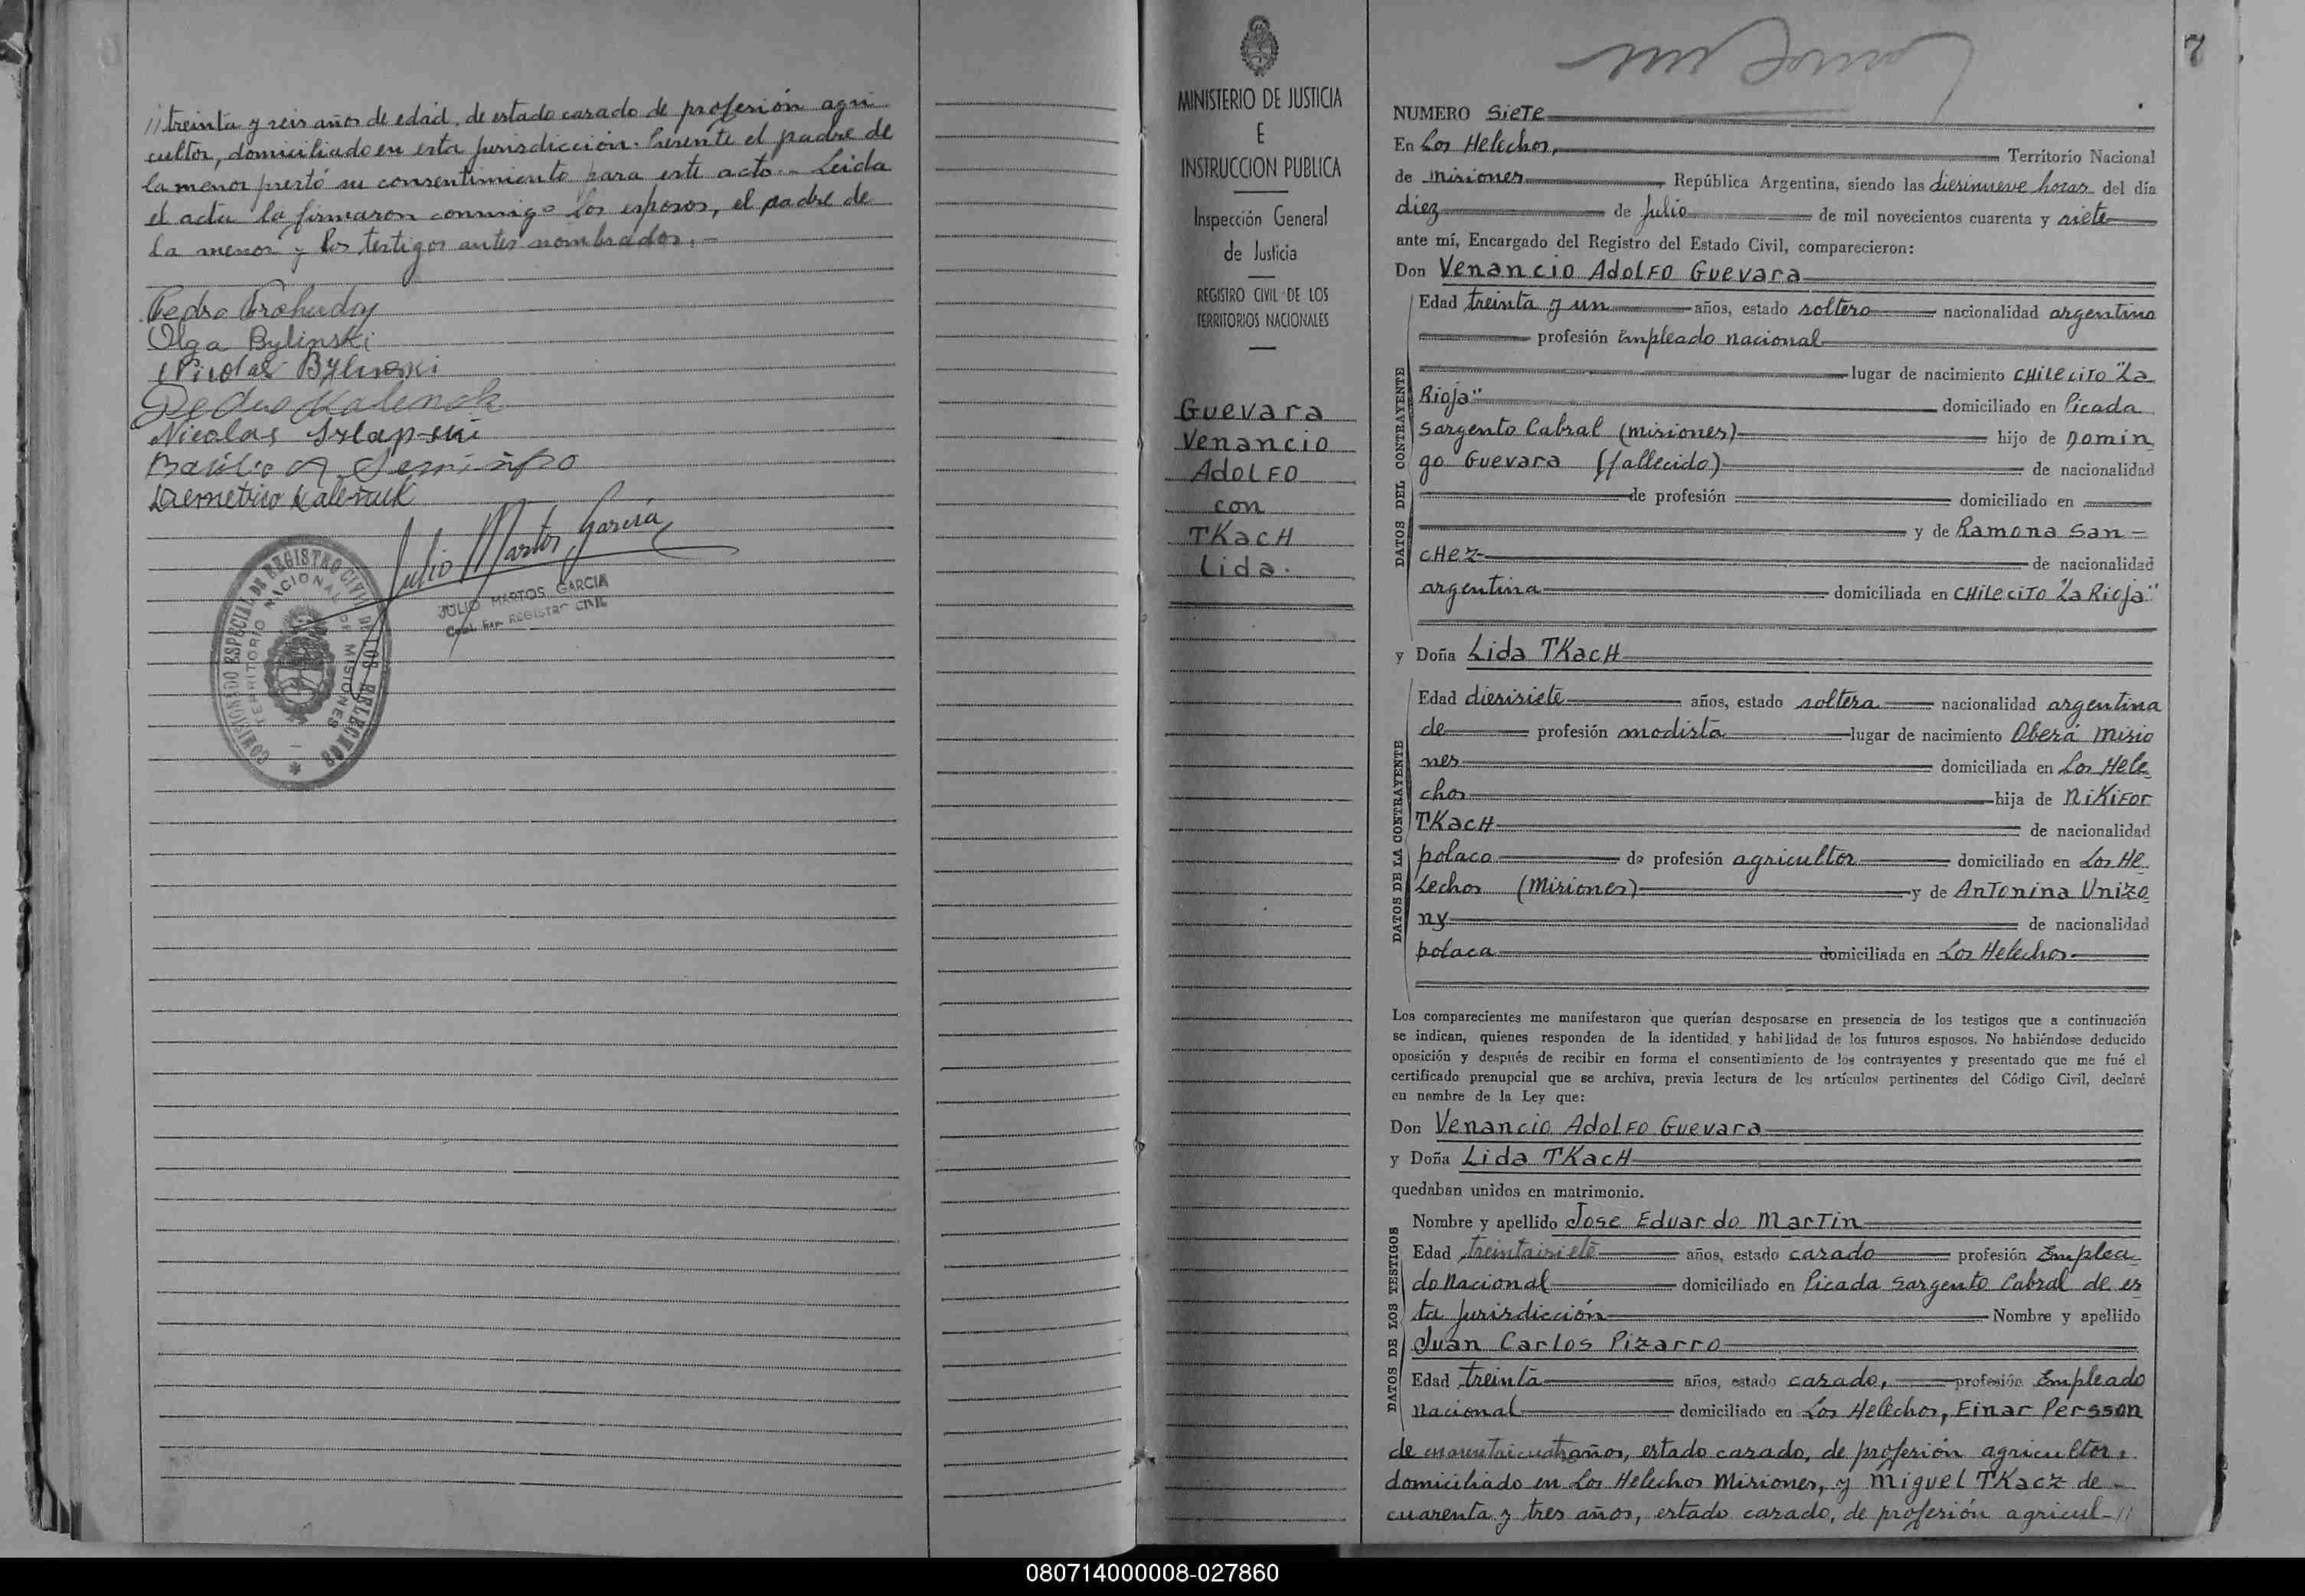 // treinta y seis años de edad, de estado casado de profesión agri
cultor, domiciliado en esta Jurisdicción. Presente el padre de
la menor prestó su consentimiento para este acto.- Leida
el acta la firmaron conmigo los esposos, el padre de
la menor y los testigos antes nombrados.-
Pedro
Olga Bylinski
Nicolas
Pedro Kalenok
Nicolas
Basilio
Demetrio
Julio Martos García
JULIO MARTOS GARCIA
REGISTRO CIVIL
COMISIONADO ESPECIAL DE REGISTRO CIVIL DE LOS HELECHOS
TERRITORIO NACIONAL DE MISIONES
MINISTERIO DE JUSTICIA
E
INSTRUCCION PUBLICA
Inspección General
de Justicia
REGISTRO CIVIL DE LOS
TERRITORIOS NACIONALES
Guevara
Venancio
Adolfo
con
Tkach
Lida.
7
NUMERO Siete
En Los Helechos, Territorio Nacional
de Misiones, República Argentina, siendo las diesinueve horas del día
diez de Julio de mil novecientos cuarenta y siete
ante mí, Encargado del Registro del Estado Civil, comparecieron:
Don Venancio Adolfo Guevara
DATOS DEL CONTRAYENTE
Edad treinta y un años, estado soltero nacionalidad argentino
profesión Empleado nacional
lugar de nacimiento Chilecito "La
Rioja" domiciliado en Picada
Sargento Cabral (Misiones) hijo de Domin
go Guevara (fallecido) de nacionalidad
de profesión domiciliado en
y de Ramona San-
chez de nacionalidad
argentina domiciliada en Chilecito "La Rioja"
y Doña Lida Tkach
DATOS DE LA CONTRAYENTE
Edad diesisiete años, estado soltera nacionalidad argentina
de profesión modista lugar de nacimiento Oberá Misio
nes domiciliada en Los Hele
chos hija de Nikifor
Tkach de nacionalidad
polaco de profesión agricultor domiciliado en Los He
lechos (Misiones) y de Antonina Unizo
ny de nacionalidad
polaca domiciliada en Los Helechos.
Los comparecientes me manifestaron que querían desposarse en presencia de los testigos que a continuación
se indican, quienes responden de la identidad y habilidad de los futuros esposos. No habiéndose deducido
oposición y después de recibir en forma el consentimiento de los contrayentes y presentado que me fué el
certificado prenupcial que se archiva, previa lectura de los artículos pertinentes del Código Civil, declaré
en nombre de la Ley que:
Don Venancio Adolfo Guevara
y Doña Lida Tkach
quedaban unidos en matrimonio.
DATOS DE LOS TESTIGOS
Nombre y apellido Jose Eduardo Martin
Edad treintaisiete años, estado casado profesión Emplea
do Nacional domiciliado en Picada Sargento Cabral de es
ta Jurisdicción Nombre y apellido
Juan Carlos Pizarro
Edad treinta años, estado casado, profesión Empleado
Nacional domiciliado en Los Helechos, Einar Persson
de cuarentaicuatro años, estado casado, de profesión agricultor,
domiciliado en Los Helechos Misiones, y Miguel Tkacz de
cuarenta y tres años, estado casado, de profesión agricul-//
080714000008-027860